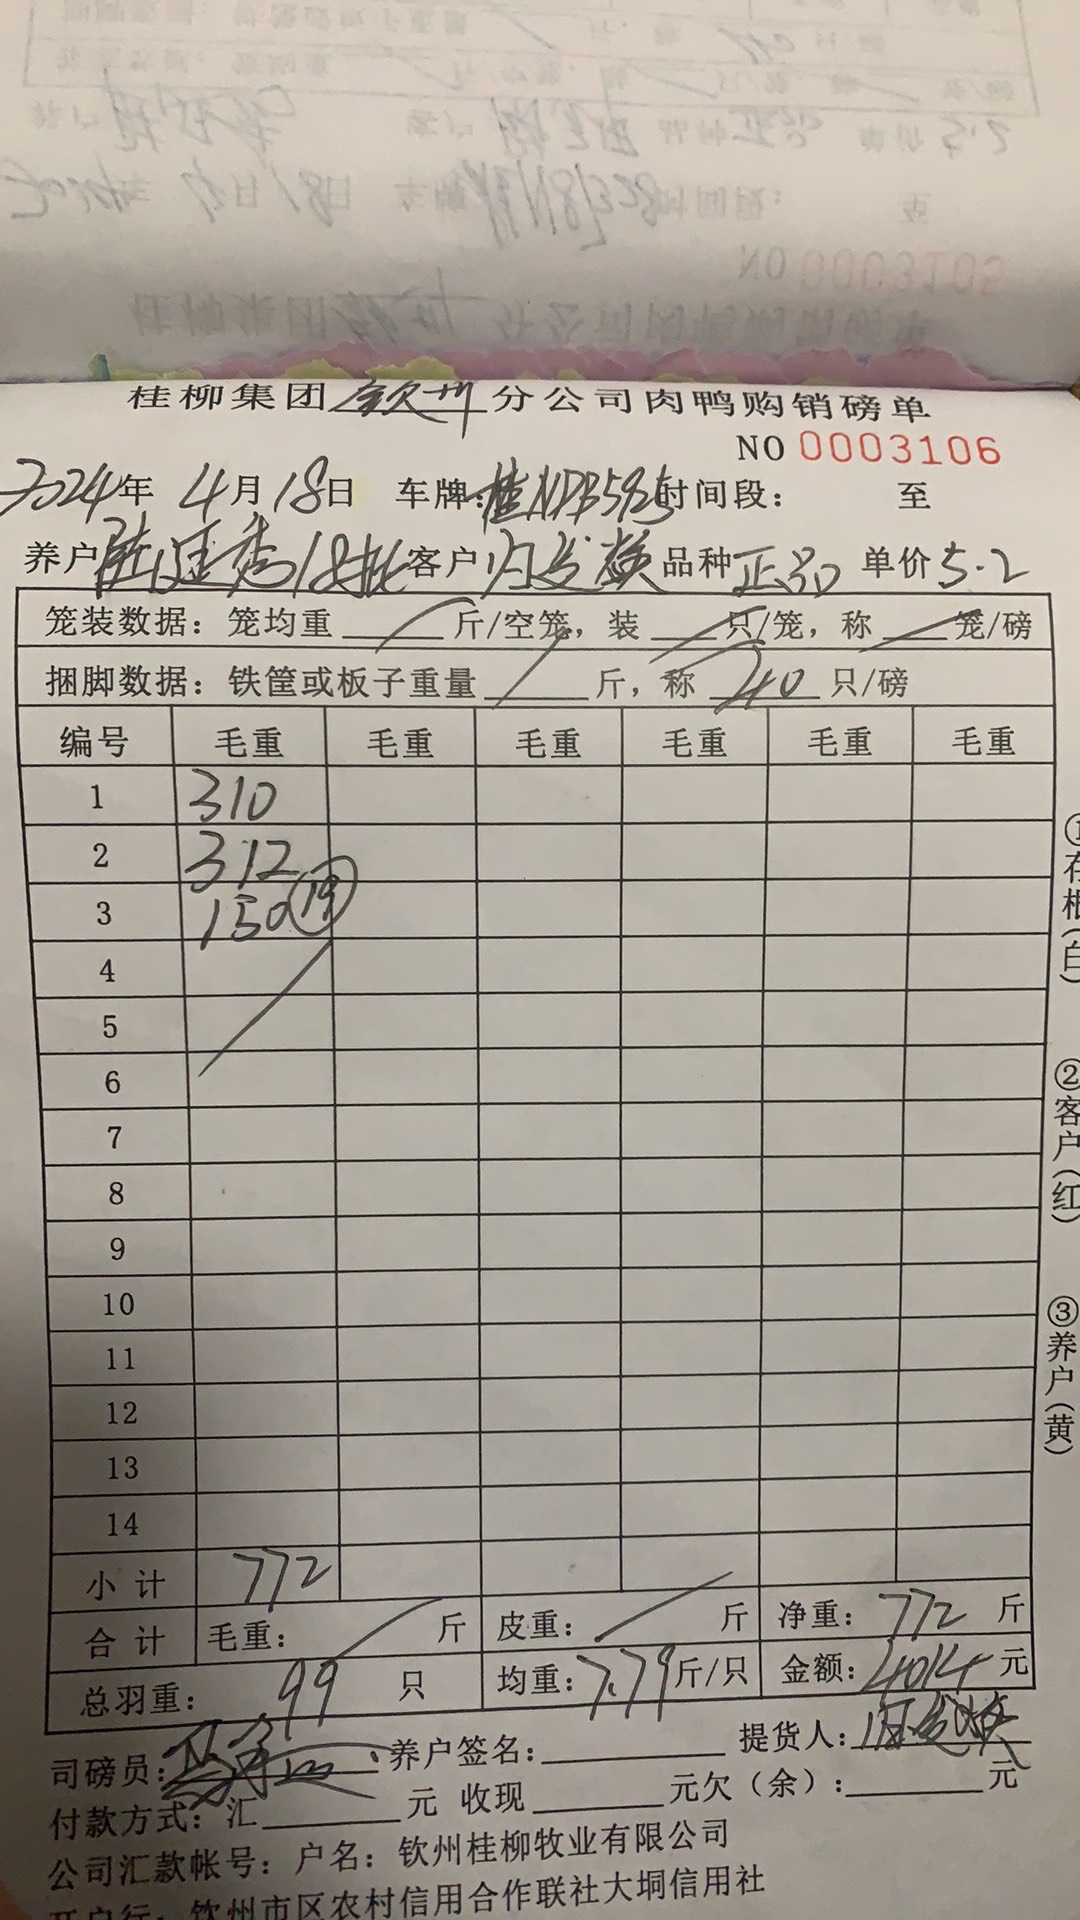 桂柳集团钦州分公司肉鸭购销磅单
NO 0003106
2024年 4月18日 车牌:桂NDB5925时间段: 至
养户 18批 客户 品种正品 单价5.2
笼装数据: 笼均重 斤/空笼, 装 只/笼, 称 笼/磅
捆脚数据: 铁筐或板子重量 斤, 称 40 只/磅
编号 毛重 毛重 毛重 毛重 毛重 毛重
1 310
2 312
3 150 19
4
5
6
7
8
9
10
11
12
13
14
小计 772
合计 毛重: 斤 皮重: 斤 净重: 772 斤
总羽重: 99 只 均重: 7.79斤/只 金额: 4014元
司磅员: 养户签名: 提货人:
付款方式: 汇 元 收现 元欠(余): 元
公司汇款帐号: 户名: 钦州桂柳牧业有限公司
开户行: 钦州市区农村信用合作联社大垌信用社
①存根(白)
②客户(红)
③养户(黄)